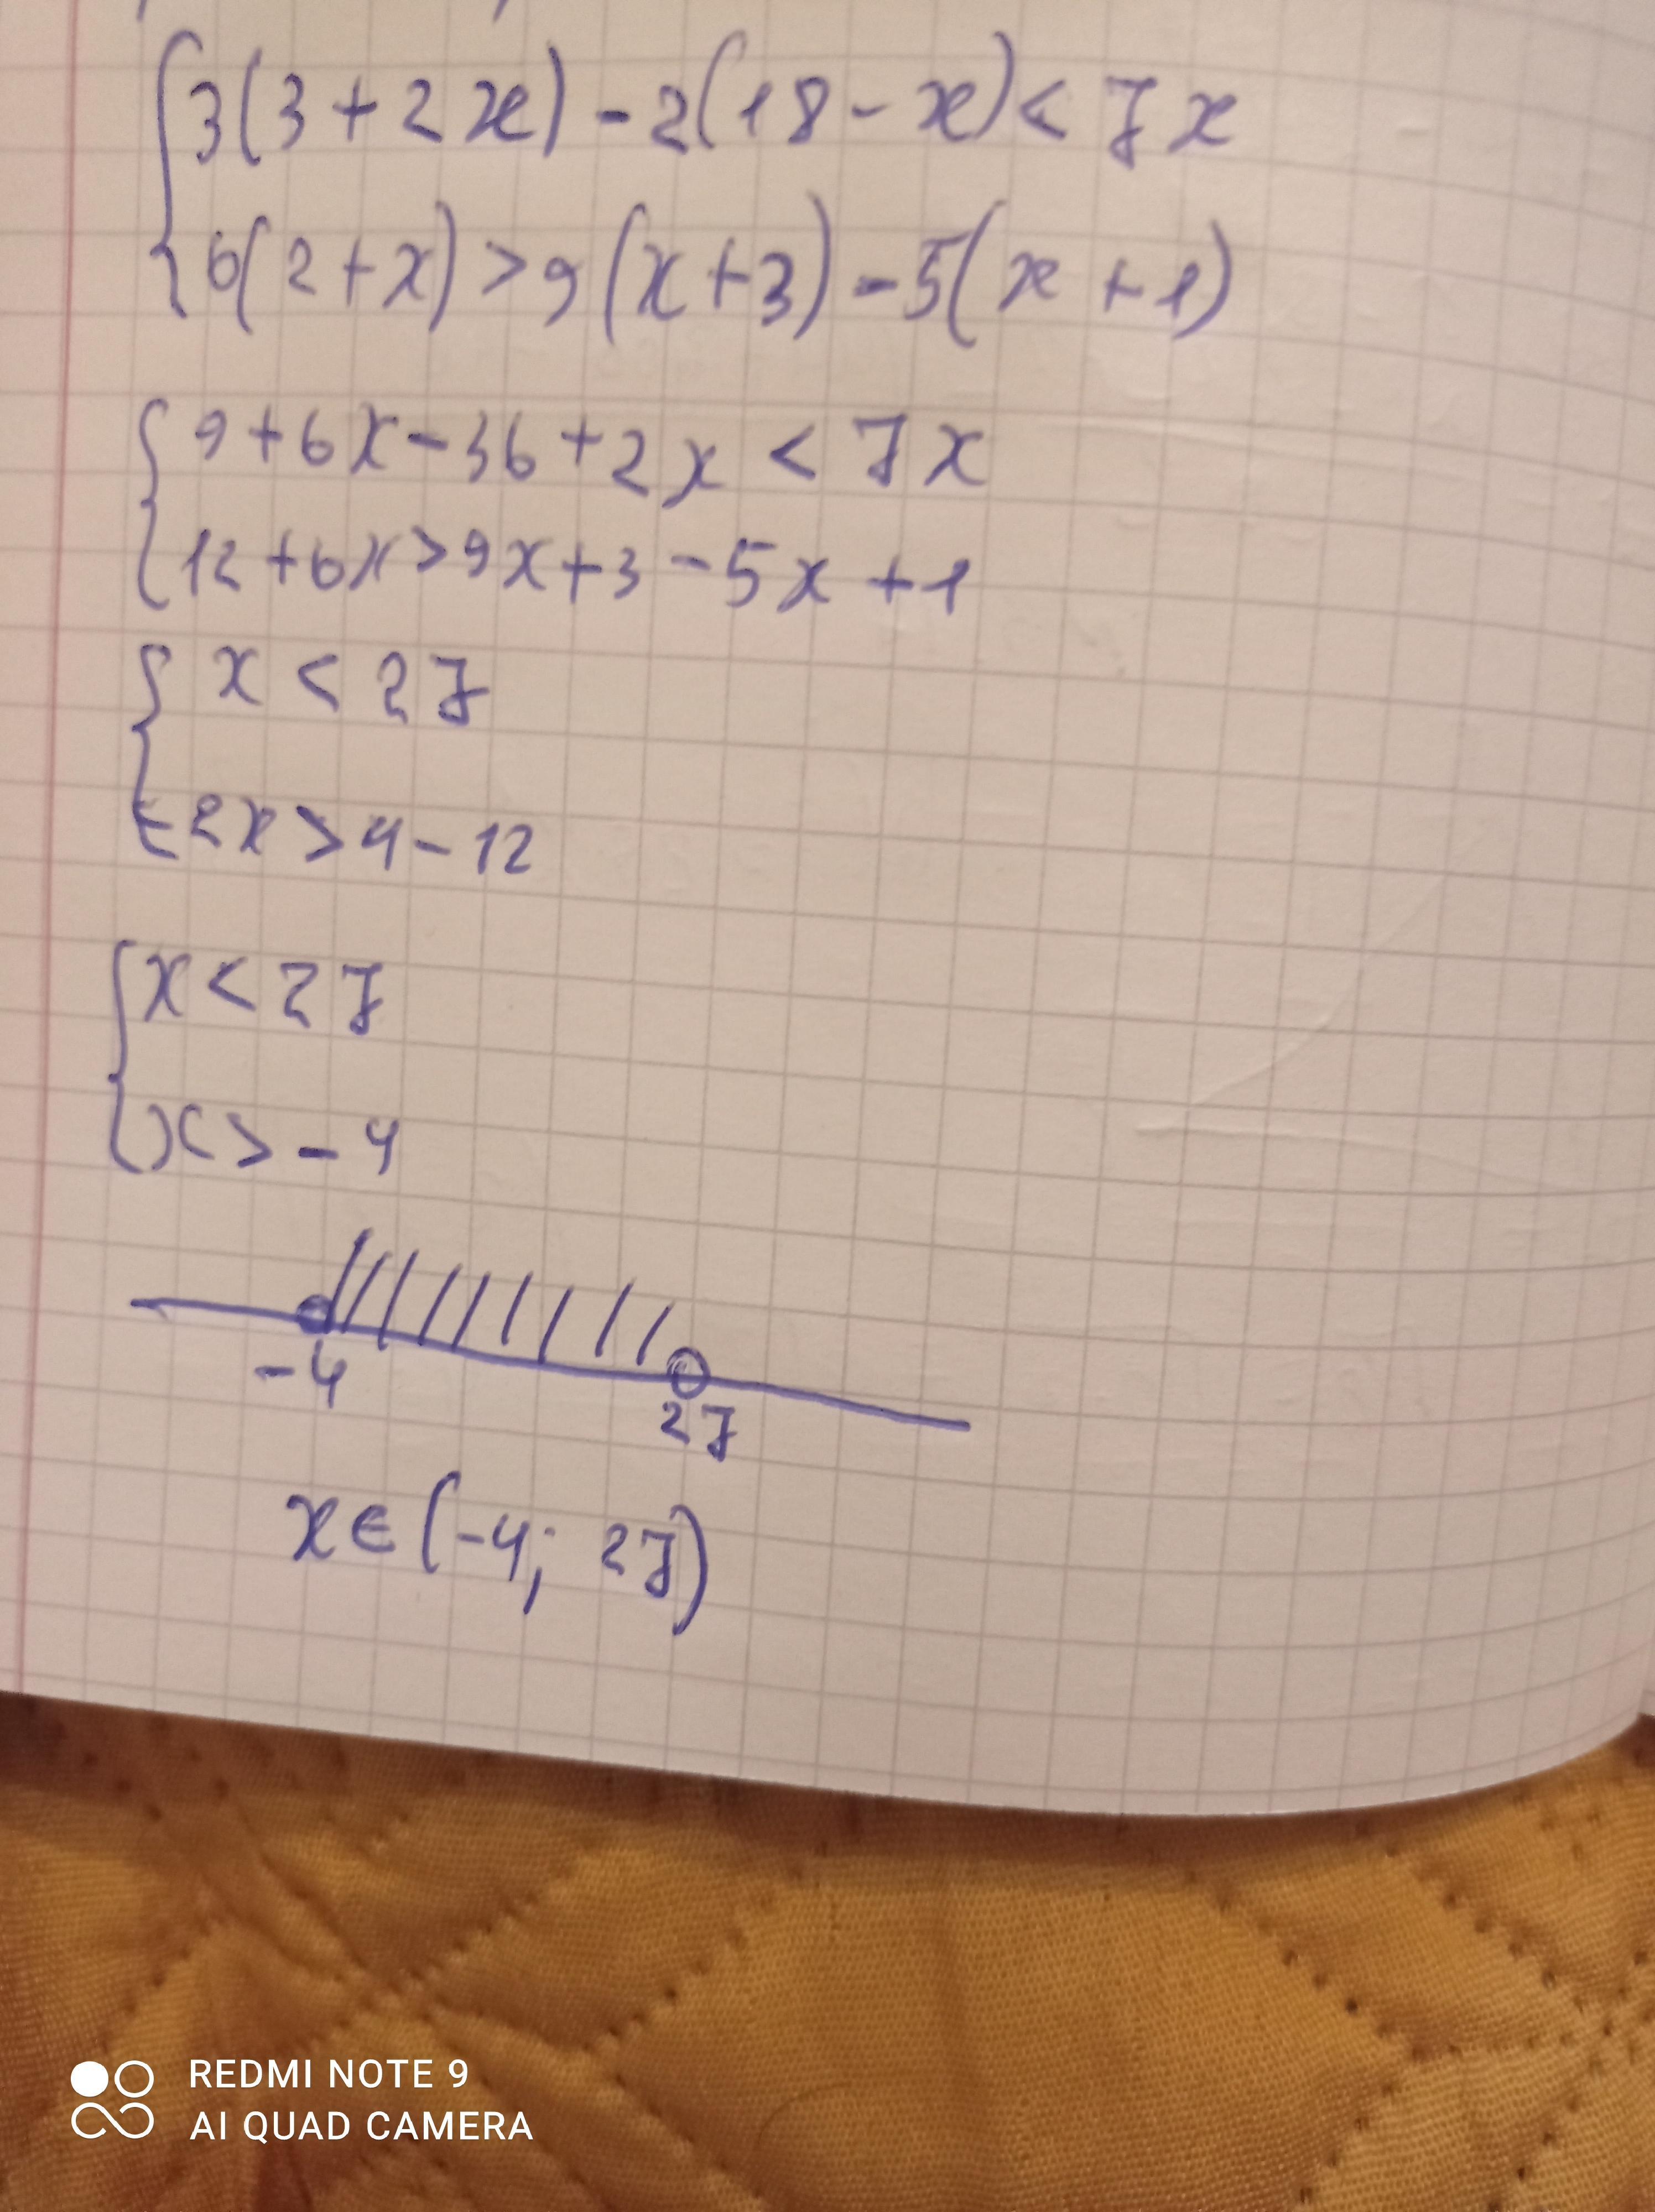 3(3+2x)-2(18-x)<7x
6(2+x)>9(x+3)-5(x+1)
9+6x-36+2x<7x
12+6x>9x+3-5x+1
x<27
2x>4-12
x<27
x>-4
-4 27
x∈(-4; 27)
REDMI NOTE 9
AI QUAD CAMERA